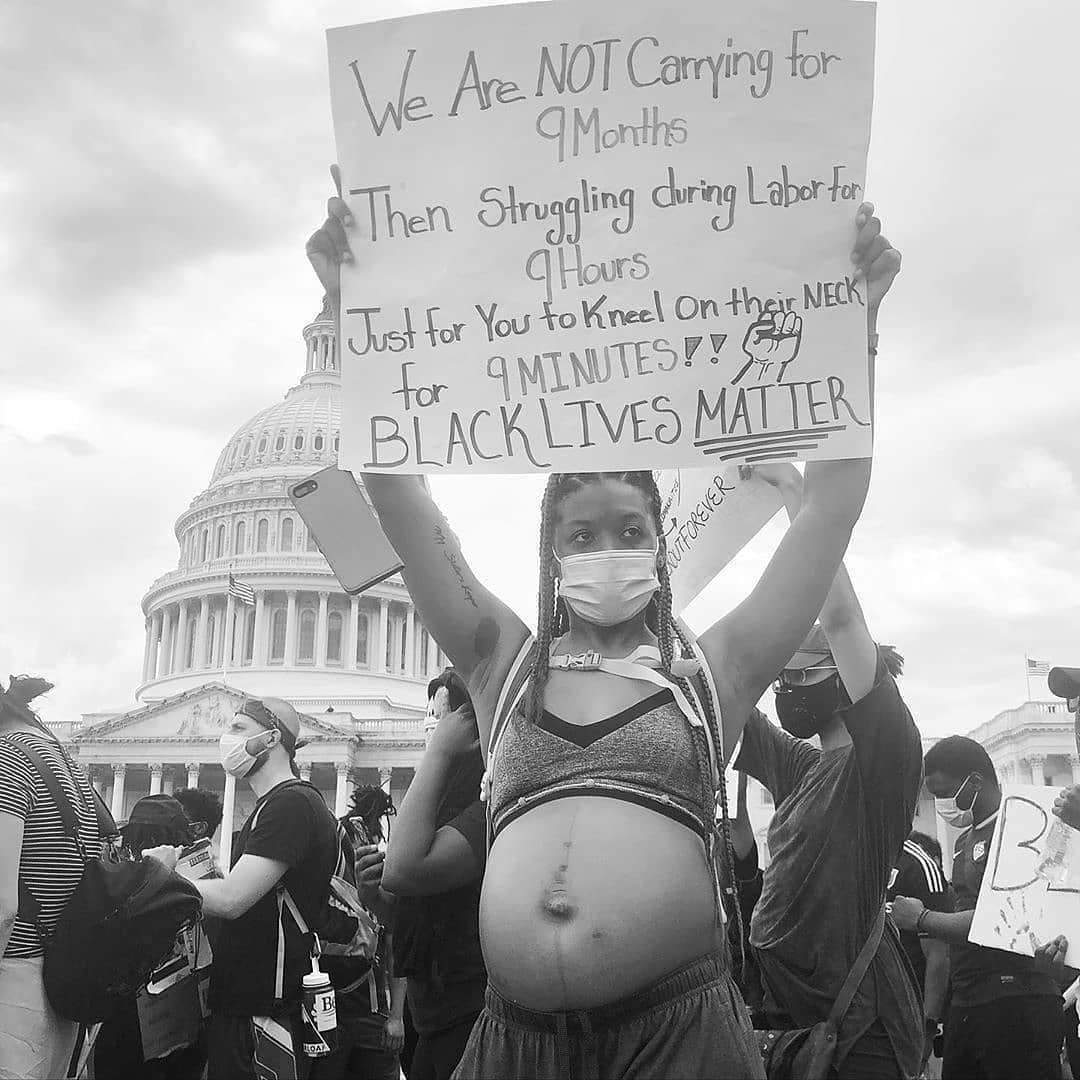 We Are NOT Carrying for
9 Months
Then Struggling during Labor for
9 Hours
Just for You to Kneel on their NECK
for 9 MINUTES!!
BLACK LIVES MATTER
OUTFOREVER
B
Be